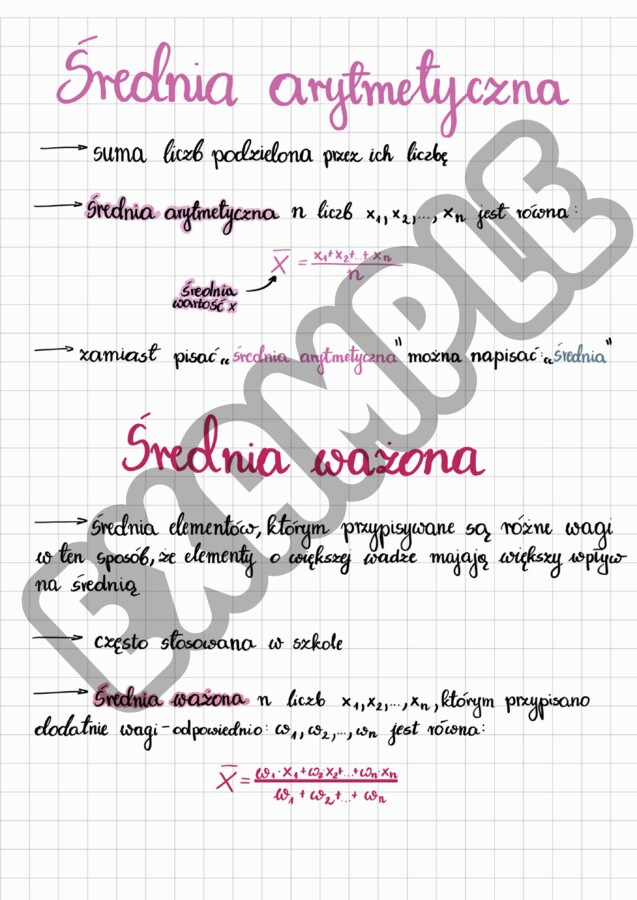 Średnia arytmetyczna
→ suma liczb podzielona przez ich liczbę
→ średnia arytmetyczna n liczb x₁, x₂, ..., xₙ jest równa:
x̄ = (x₁+x₂+...+xₙ)/n
średnia
wartość x
→ zamiast pisać „średnia arytmetyczna" można napisać: „średnia"
Średnia ważona
→ średnia elementów, którym przypisywane są różne wagi
w ten sposób, że elementy o większej wadze majają większy wpływ
na średnią
→ często stosowana w szkole
→ średnia ważona n liczb x₁, x₂, ..., xₙ, którym przypisano
dodatnie wagi - odpowiednio: ω₁, ω₂, ..., ωₙ jest równa:
x̄ = (ω₁·x₁+ω₂·x₂+...+ωₙ·xₙ)/(ω₁+ω₂+...+ωₙ)
EXAMPLE